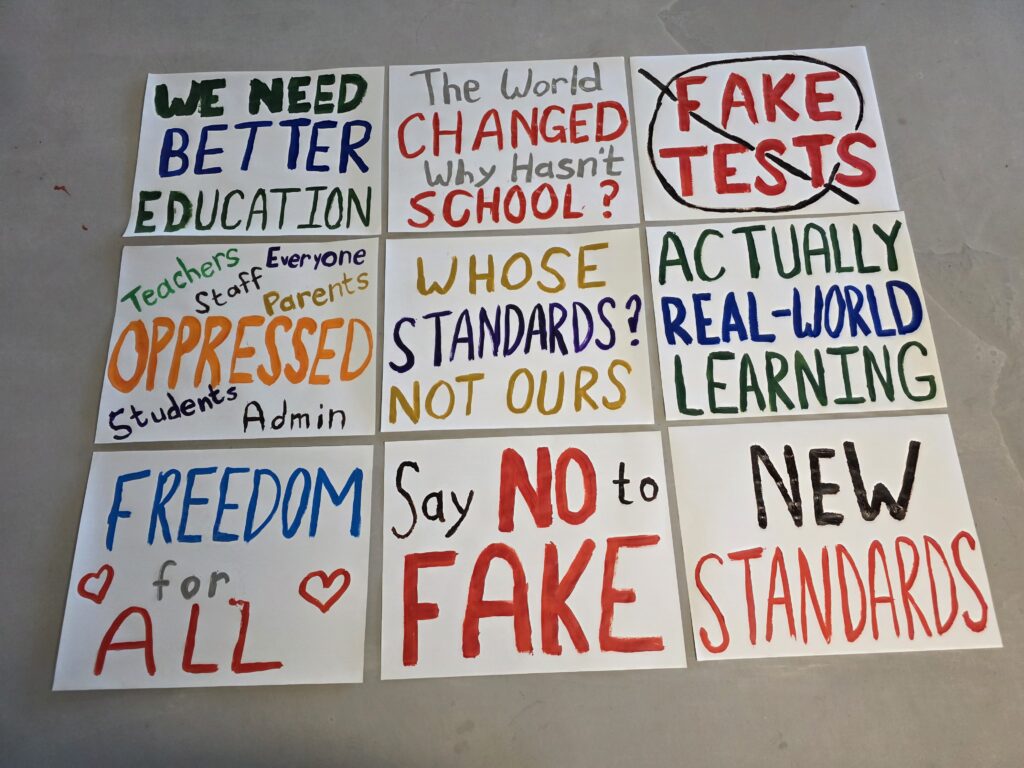 WE NEED
BETTER
EDUCATION
The World
CHANGED
Why Hasn't
SCHOOL?
FAKE
TESTS
Teachers
Everyone
Staff
Parents
OPPRESSED
Students
Admin
WHOSE
STANDARDS?
NOT OURS
ACTUALLY
REAL-WORLD
LEARNING
FREEDOM
for
ALL
Say NO to
FAKE
NEW
STANDARDS